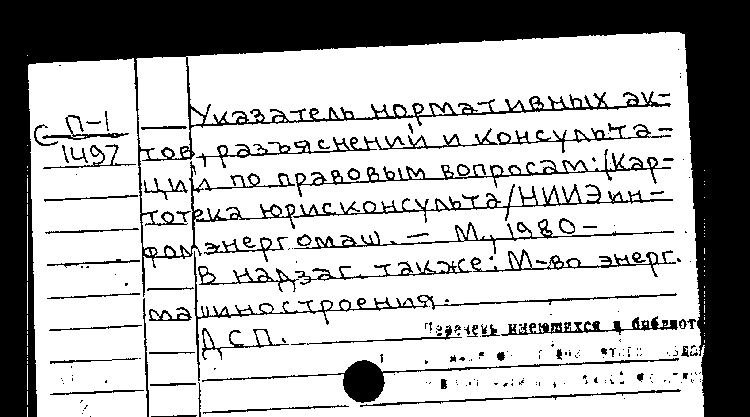 С П-1
1497
Указатель нормативных ак-
тов, разъяснений и консульта-
ций по правовым вопросам: (Кар-
тотека юрисконсульта/НИИЭин-
формэнергомаш. — М., 1980 -
В надзаг. также: М-во энерг.
машиностроения.
ДСП.
Перечень имеющихся в библиот